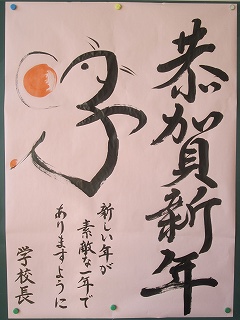 恭賀新年
新しい年が
素敵な一年で
ありますように
学校長